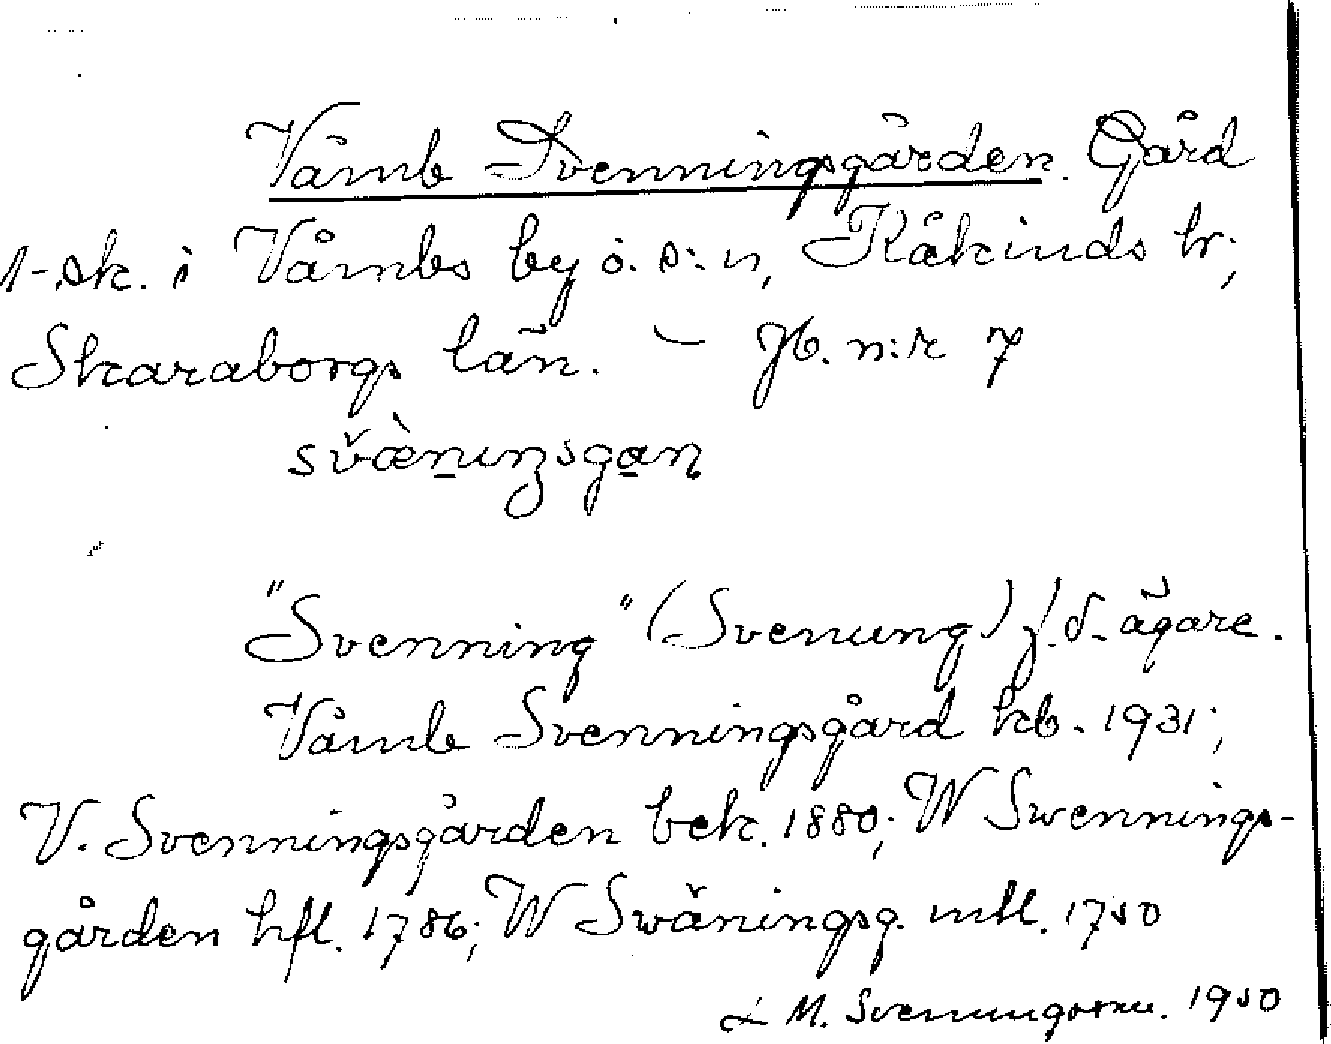 Våmb Svenningsgården. Gård
1-sk. i Våmbs by o. s:n, Kåkinds hr;
Skaraborgs län. – Jb. n:r 7
svæ̀nıŋsgaɳ
"Svenning" (Svenung) f.d. ägare.
Våmb Svenningsgård kb. 1931;
V. Svenningsgården bek. 1880; W Swennings-
gården hfl. 1786; W Swäningsg. mtl. 1750
L M. Svenungsson. 1950